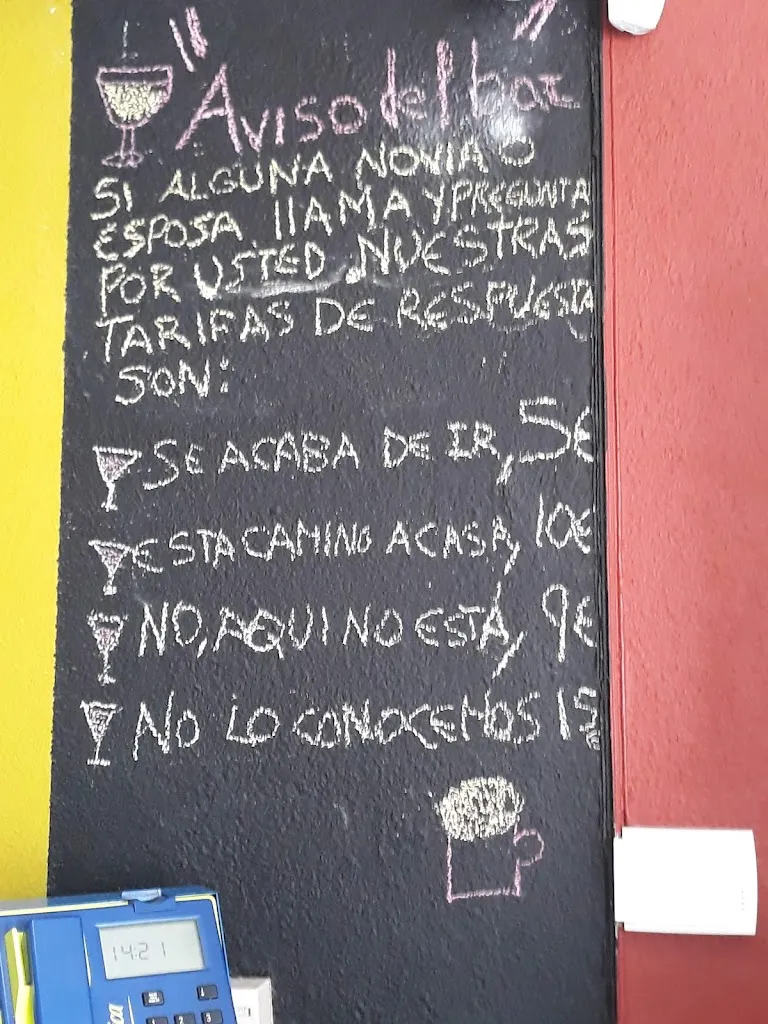 "Aviso del bar"
SI ALGUNA NOVIA O
ESPOSA llAMA Y PREGUNTA
POR USTED, NUESTRAS
TARIFAS DE RESPUESTA
SON:
SE ACABA DE IR, 5€
ESTA CAMINO A CASA, 10€
NO, AQUI NO ESTÁ, 9€
NO LO CONOCEMOS 15€
14:21